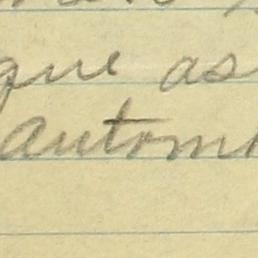 que as
autom